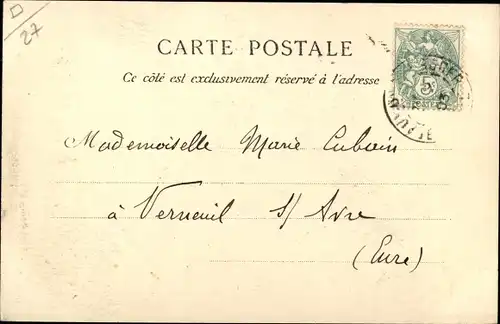 27
CARTE POSTALE
Ce côté est exclusivement réservé à l'adresse
5c
POSTES
Mademoiselle Marie Lubin
à Verneuil s/ Avre
(Eure)